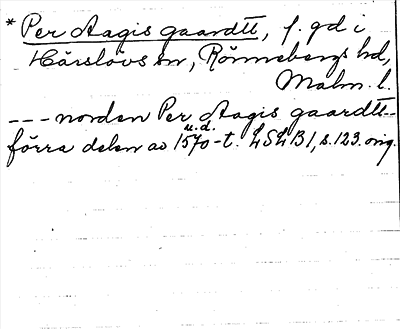 * Per Aagis gaardtt, f. gd i
Härslövs sn, Rönnebergs hd,
Malm. l.
--- norden Per Aagis gaardtt--
u.d.
förra delen av 1570-t. LSLB1, s. 123. orig.